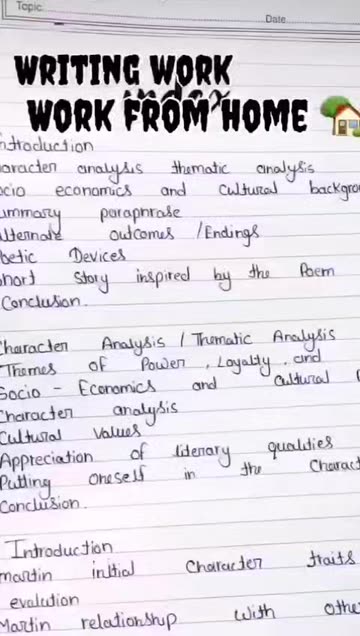 Topic:
Date
WRITING WORK
index
WORK FROM HOME
ntroduction
aracter analysis thematic analysis
ocio economics and cultural backgro
ummary paraphrase
lternate outcomes /Endings
oetic Devices
hort story inspired by the Poem
Conclusion.
Character Analysis / Thematic Analysis
Themes of Power, Loyalty, and
Socio - Economics and Cultural
Character analysis
Cultural values
Appreciation of literary qualities
Putting oneself in the Charact
Conclusion.
Introduction
martin initial Character traits
evalution
Martin relationship with othe